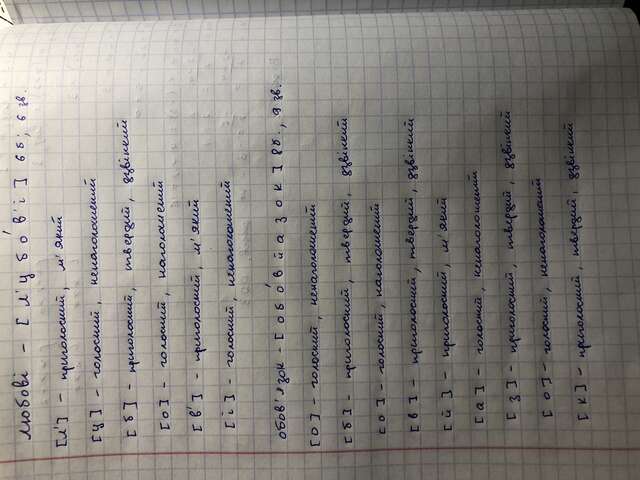 любові - [ л' у б о́ в' і ] 6 б; 6 зв.
[л'] - приголосний, м'який
[у] - голосний, ненаголошений
[б] - приголосний, твердий, дзвінкий
[о] - голосний, наголошений
[в'] - приголосний, м'який
[і] - голосний, ненаголошений
обов'язок - [ о б о́ в й а з о к ] 8 б., 9 зв.
[о] - голосний, ненаголошений
[б] - приголосний, твердий, дзвінкий
[о] - голосний, наголошений
[в] - приголосний, твердий, дзвінкий
[й] - приголосний, м'який
[а] - голосний, ненаголошений
[з] - приголосний, твердий, дзвінкий
[о] - голосний, ненаголошений
[к] - приголосний, твердий, дзвінкий